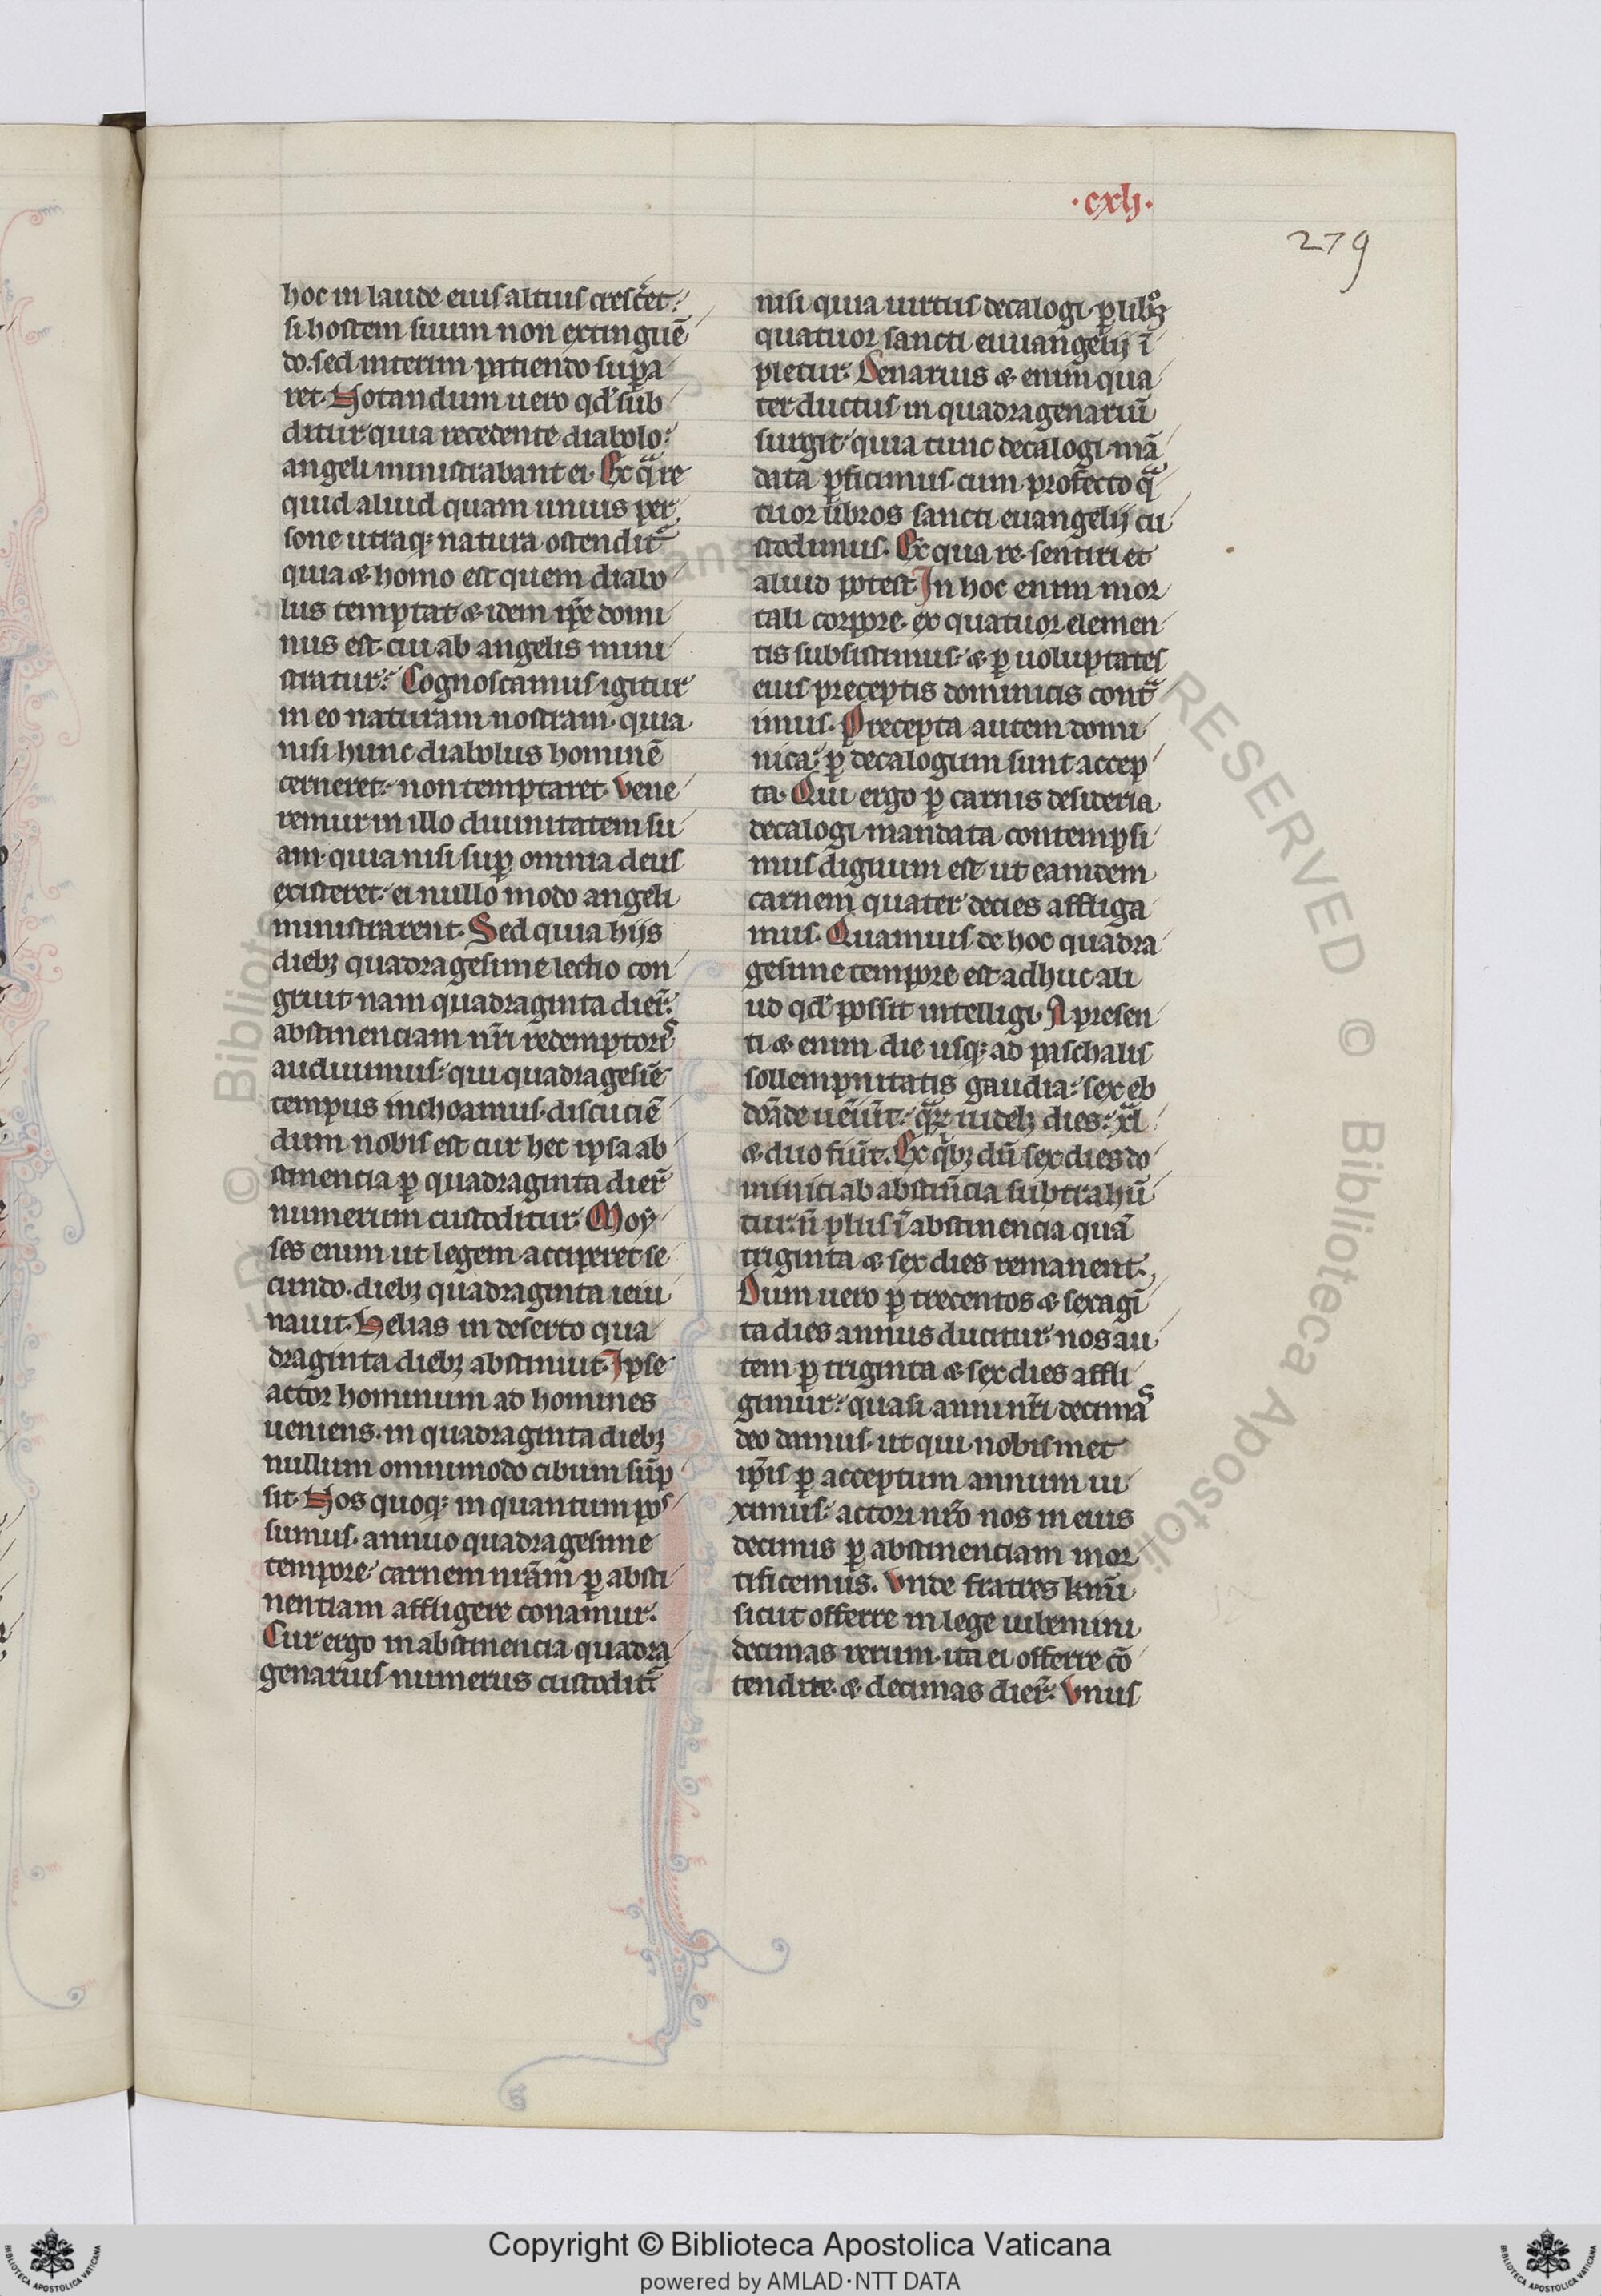 ·cxlj·
279
hoc in laude eius altius cresc̄et.
si hostem suum non extinguē
do. sed interim patiendo supa
ret. Notandum uero qd' sub
ditur quia recedente diabolo:
angeli ministrabant ei. Ex qͣ re
quid aliud quam unius per
sone utraq; natura ostendit᷑
quia & homo est quem diabo
lus temptat & idem ip̄e domi
nus est. cui ab angelis mini
stratur. Cognoscamus igitur
in eo naturam nostram. quia
nisi hunc diabolus hominē
cerneret. non temptaret. Vene
remur in illo diuinitatem su
am. quia nisi suꝑ omnia deus
existeret. ei nullo modo angeli
ministrarent. Sed quia hijs
diebꝫ quadragesime lectio con
gruit. nam quadraginta dieꝝ.
abstinenciam nr̄i redemptoris
audiuimus. qui quadragesīe
tempus inchoamus. discuciē
dum nobis est cur hec ipsa ab
stinencia ꝑ quadraginta dieꝝ
numerum custoditur. Moy
ses enim ut legem acciperet se
cundo. diebꝫ quadraginta ieiu
nauit. Helias in deserto qua
draginta diebꝫ abstinuit. Ipse
actor hominum ad homines
ueniens. in quadraginta diebꝫ
nullum omnimodo cibum sūp
sit. Nos quoq; in quantum pos
sumus. annuo quadragesime
tempore. carnem nr̄am ꝑ absti
nentiam affligere conamur.
Cur ergo in abstinencia quadra
genarius numerus custodit᷑
nisi quia uirtus decalogi. ꝑ libꝛoꝫ
quatuor sancti euuangelij ī
pletur. Denarius & enim qua
ter ductus in quadragenariū
surgit. quia tunc decalogi mā
data ꝑficimus. cum profecto qͣ
tuor libros sancti euangelij cu
stodimus. Ex qua re. sentiri et
aliud potest. In hoc enim mor
tali corpore. ex quatuor elemen
tis subsistimus. & ꝑ uoluptates
eius preceptis dominicis contͣ
imus. Precepta autem domi
nica. ꝑ decalogum sunt accep
ta. Qui ergo ꝑ carnis desideria
decalogi mandata contempsi
mus dignum est ut eamdem
carnem quater decies affliga
mus. Quamuis de hoc quadra
gesime tempore est adhuc ali
ud qd' possit intelligi. A presen
ti & enim die usq; ad paschalis
sollempnitatis gaudia. sex eb
dōade uēiūt. qͣꝝ uidelꝫ dies. xl
& duo fiūt. Ex qͥbꝫ dū sex dies do
minici ab abstin̄cia subtrahū
tur. n̄ plus ī abstinencia quā
triginta & sex dies remanent.
Dum uero ꝑ trecentos & sexagī
ta dies annus ducitur. nos au
tem ꝑ triginta & sex dies affli
gimur. quasi anni nr̄i decimas
deo damus. ut qui nobismet
ip̄is ꝑ acceptum annum ui
ximus. actori nr̄o nos in eius
decimis ꝑ abstinenciam mor
tificemus. Vnde fratres kmi
sicut offerre in lege iubemini
decimas rerum. ita ei offerre cō
tendite. & decimas dieꝝ. Vnus
Copyright © Biblioteca Apostolica Vaticana
powered by AMLAD·NTT DATA